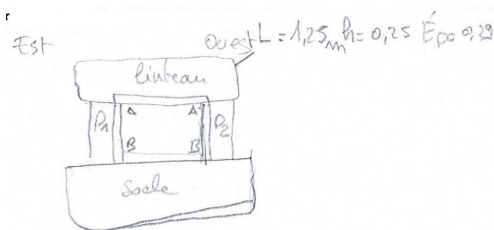 Est
Ouest L = 1,25m h = 0,25 Ép = 0,29
linteau
A A
P1 P2
B B
Socle